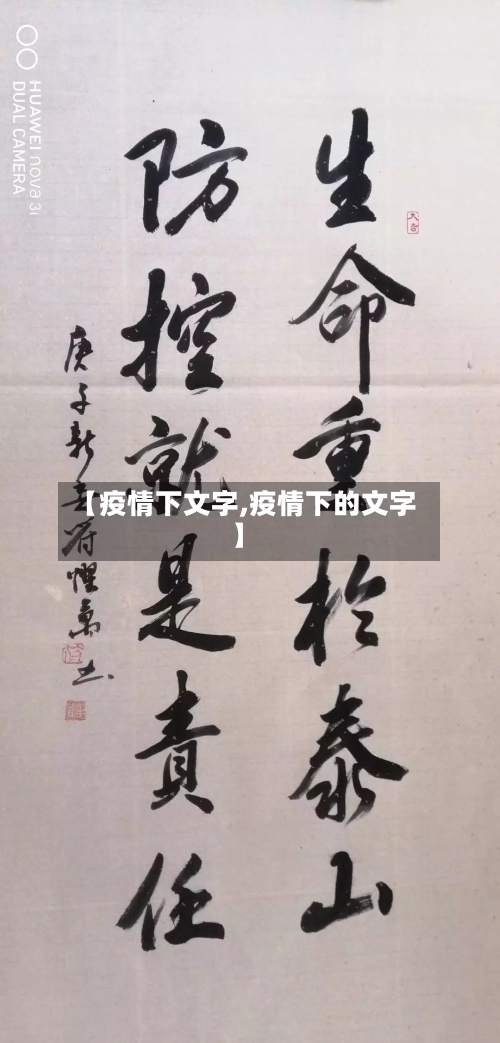 生命重於泰山
防控就是責任
庚子新春
【疫情下文字,疫情下的文字
】
HUAWEI nova 3i
DUAL CAMERA